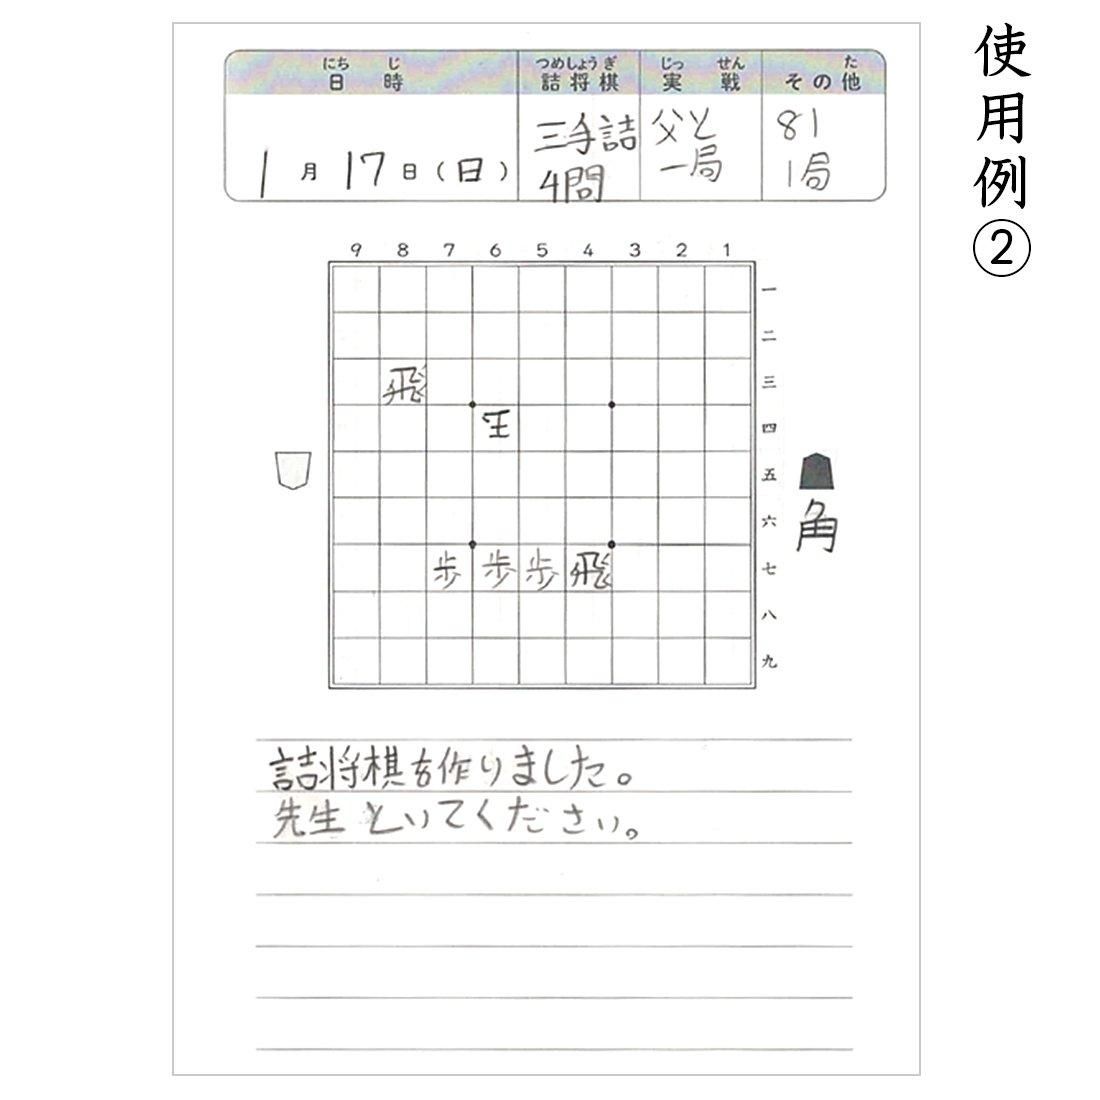 使用例②
にちじ つめしょうぎ じっせん た
日時 詰将棋 実戦 その他
1月17日(日) 三手詰 父と 81
4問 一局 1局
9 8 7 6 5 4 3 2 1
一
二
飛 三
王 四
五
六
角
歩 歩 歩 飛 七
八
九
詰将棋を作りました。
先生 といてください。